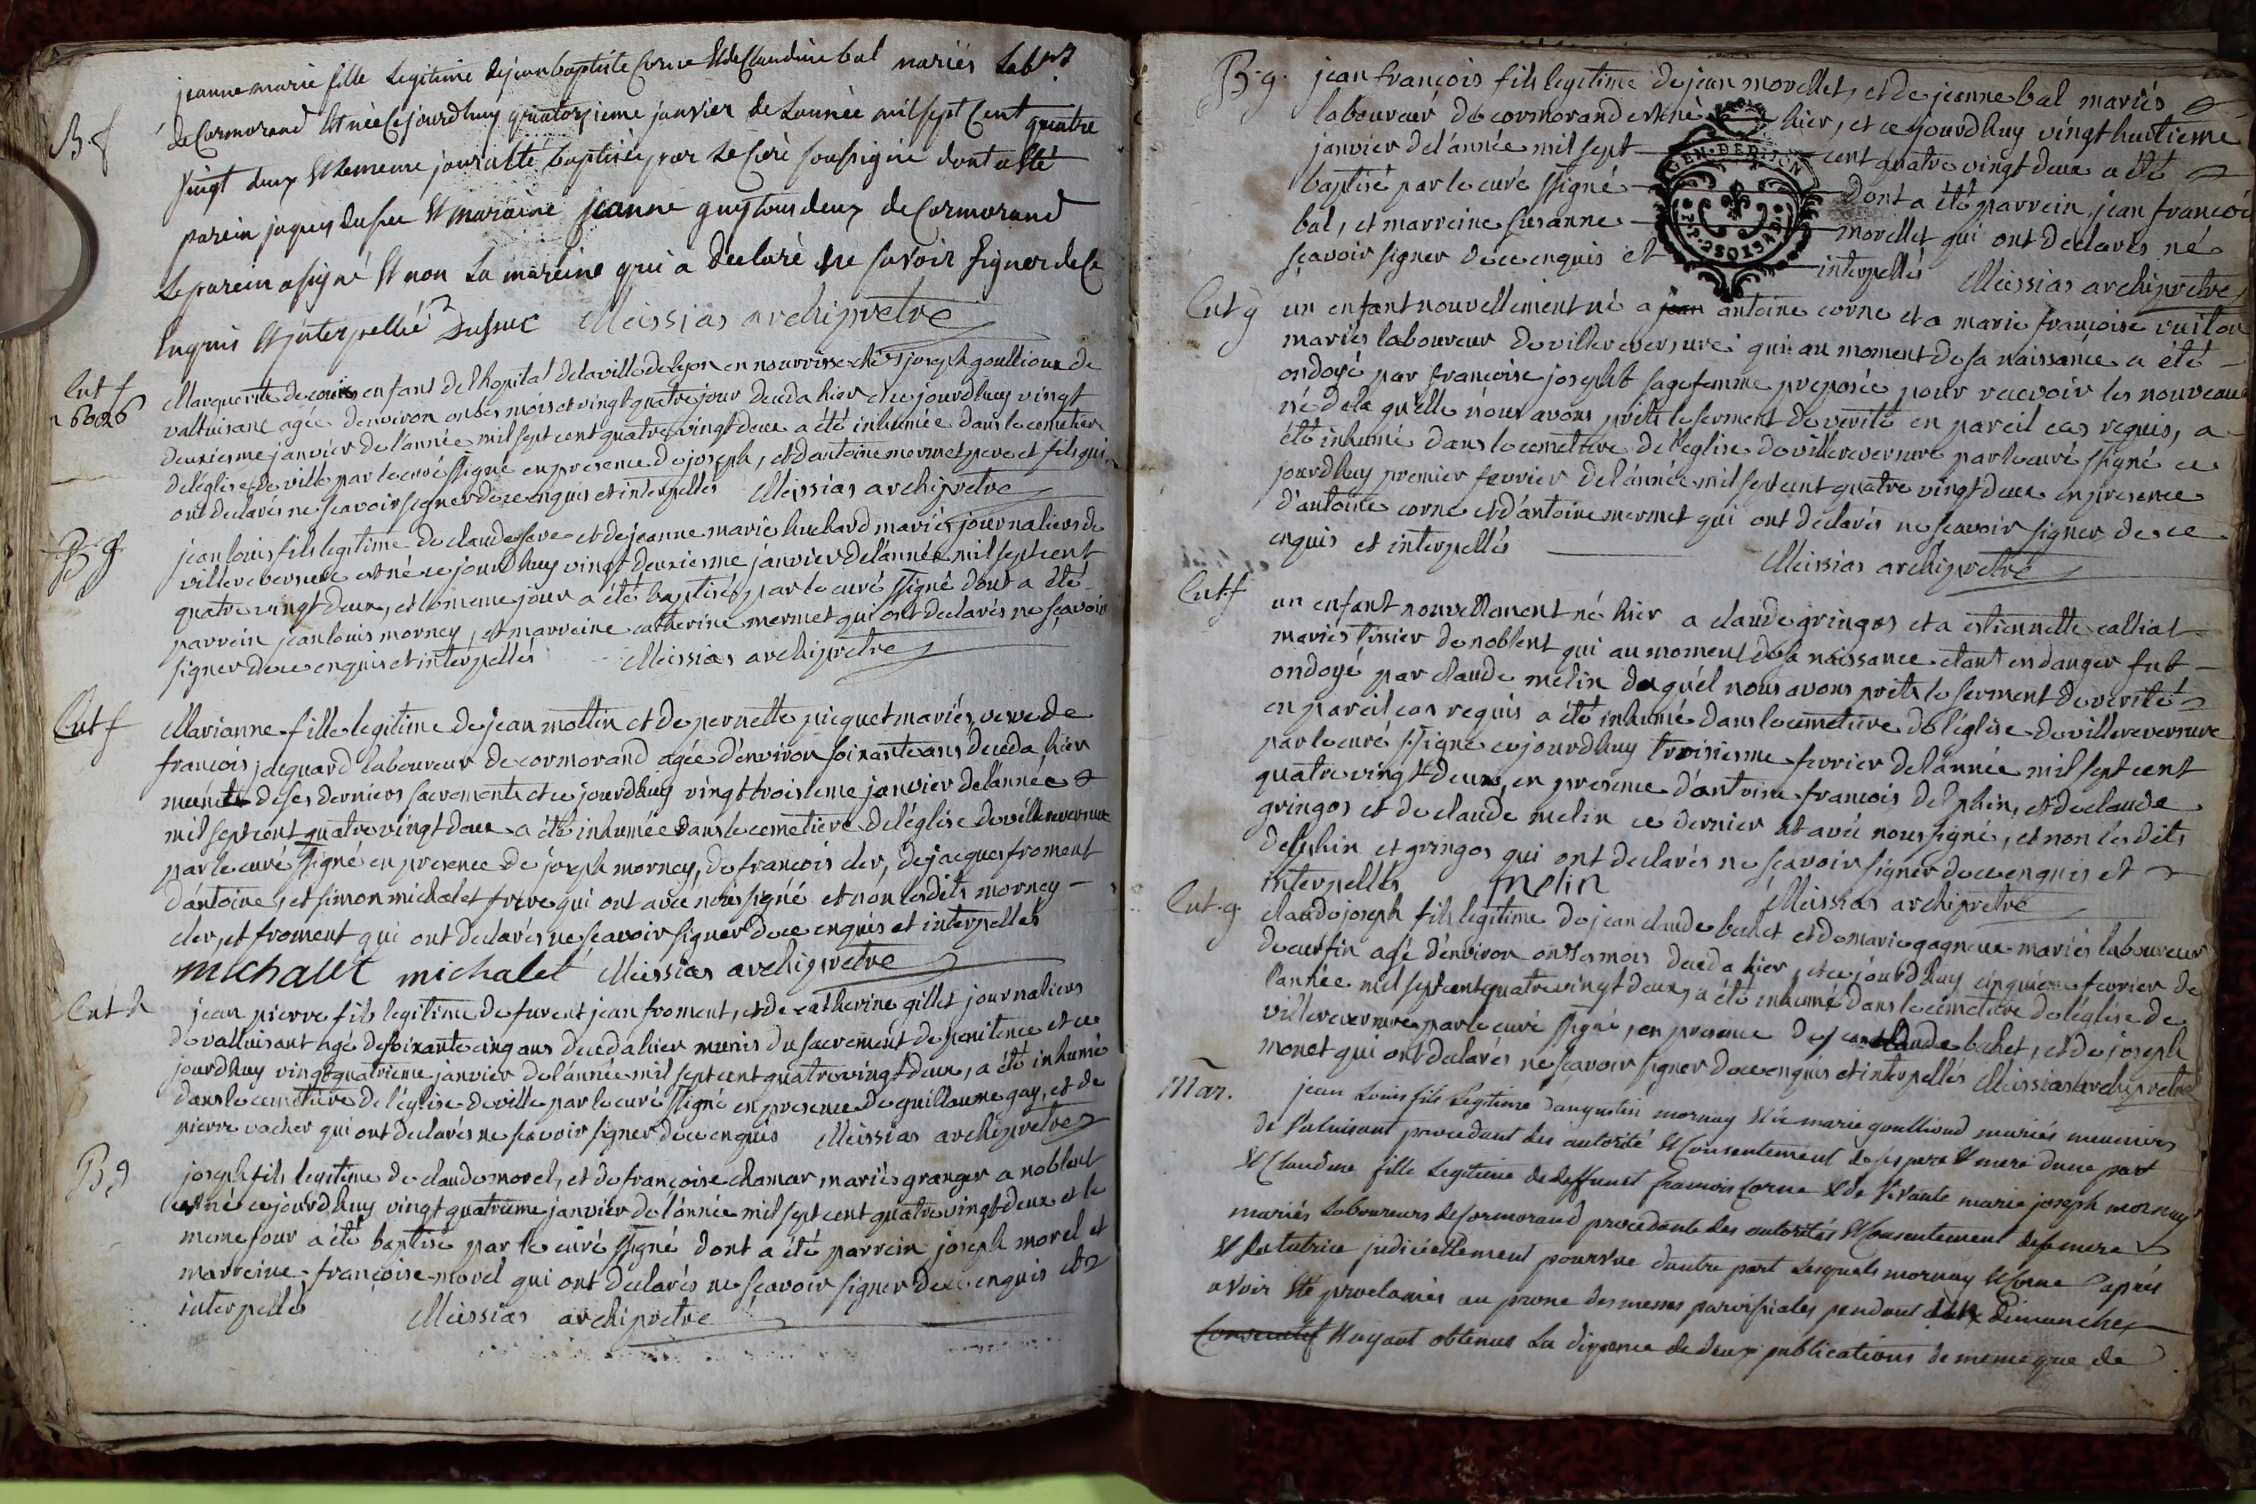 jeanne marie fille Legitime de jean baptiste Corne Et de Claudine bal mariés Labrs
B f
de Cormorand Est née Ce jourdhuy quatorzieme janvier de Lannée mil sept Cent quatre
vingt deux Et le meme jour a Eté baptisée par Le Curé soussigné dont a Eté
parein jaques dusuc Et maraine jeanne guy tous deux de Cormorand
Le parein a signé Et non La mareine qui a declaré Ne savoir signer de Ce
Enquis Et interpellée Dusuc Meissias archipretre
Ent f
n 6026
Marguerite de enfant de l'hopital de la ville de lyon en nourrisse chés joseph goullioux de
valluisant agée d'environ onses mois et vingt quatre jour deceda hier et ce jourdhuy vingt
deuxiesme janvier de l'année mil sept cent quatre vingt deux a été inhumée dans le cemetiere
de l'eglise de ville par le curé ssigné en presence de joseph, et d'antoine mermet pere et fils qui
ont declarés ne sçavoir signer de ce enquis et interpellés Meissias archipretre
B g
jean louis fils legitime de claude favre et de jeanne marie huchard mariés journaliers de
villereversure est né ce jourdhuy vingt deuxiesme janvier de l'année mil sept cent
quatre vingt deux, et le meme jour a été baptisé par le curé ssigné dont a été
parrein jean louis morney, et marreine catherine mermet qui ont declarés ne sçavoir
signer de ce enquis et interpellés Meissias archipretre
Ent f
Marianne fille legitime de jean mottin et de pernette picquet mariés, veuve de
françois jacquard laboureur de cormorand agée d'environ soixante ans deceda hier
munie de ses derniers sacrements et ce jourdhuy vingt troisieme janvier de l'année
mil sept cent quatre vingt deux a été inhumée dans le cemetiere de l'église de villereversure
par le curé ssigné en presence de joseph morney, de françois cler, de jacques froment
d'antoine, et simon michalet frere qui ont avec nous signé et non lesdits morney
cler, et froment qui ont declarés ne sçavoir signer de ce enquis et interpellés
michalet michalet Meissias archipretre
Ent h
jean pierre fils legitime de furent jean froment, et de catherine gillet journaliers
de valluisant agé de soixante cinq ans deceda hier munis du sacrement de penitence et ce
jourdhuy vingt quatrieme janvier de l'année mil sept cent quatre vingt deux, a été inhumé
dans le cemetiere de l'église de ville par le curé ssigné en presence de guillaume gay, et de
pierre vacher qui ont declarés ne sçavoir signer de ce enquis Meissias archipretre
B g
joseph fils legitime de claude morel, et de françoise chamar mariés granger a noblent
est né ce jourdhuy vingt quatrieme janvier de l'année mil sept cent quatre vingt deux et le
meme jour a été baptisé par le curé ssigné dont a été parrein joseph morel et
marreine françoise morel qui ont declarés ne sçavoir signer de ce enquis et
interpellés Meissias archipretre
B. g.
jean françois fils legitime de jean morellet, et de jeanne bal mariés
laboureur de cormorand est né hier, et ce jourdhuy vingt huitieme
janvier de l'année mil sept cent quatre vingt deux a été
baptisé par le curé ssigné dont a été parrein jean françois
bal, et marreine susanne morellet qui ont declarés ne
sçavoir signer de ce enquis et interpellés Meissias archipretre
GEN. DE DIJON
Ent g
un enfant nouvellement né a jean antoine corne et a marie françoise vuillon
mariés laboureur de villereversure qui au moment de sa naissance a été
ondoyé par françoise josepht sagefemme preposée pour recevoir les nouveaux
né de la qu'elle nous avons prett le serment de verité en pareil cas requis, a
été inhumé dans le cemetiere de l'eglise de villereversure par le curé ssigné ce
jourdhuy premier fevrier de l'année mil sept cent quatre vingt deux en presence
d'antoine corne et d'antoine mermet qui ont declarés ne sçavoir signer de ce
enquis et interpellés Meissias archipretre
Ent f
un enfant nouvellement né hier a claude gringos et a estiennette calliat
mariés tissier de noblent qui au moment de sa naissance etant en danger fut
ondoyé par claude melin du quel nous avons prett le serment de verité
en pareil cas requis a été inhumé dans le cemetiere de l'église de villereversure
par le curé ssigné ce jourdhuy troisiesme fevrier de l'année mil sept cent
quatre vingt deux, en presence d'antoine françois delphin, et de claude
gringos et de claude melin ce dernier at avec nous signé, et non lesdits
delphin et gringos qui ont declarés ne sçavoir signer de ce enquis et
interpellés melin Meissias archipretre
Ent. g.
claude joseph fils legitime de jean claude bechet et de marie gagneux mariés laboureur
de agé d'environ onses mois deceda hier, et ce jourdhuy cinquieme fevrier de
l'année mil sept cent quatre vingt deux, a été inhumé dans le cemetiere de l'église de
villereversure par le curé ssigné, en presence de jean claude bechet, et de joseph
monet qui ont declarés ne sçavoir signer de ce enquis et interpellés Meissias archipretre
Mar.
jean Louis fils Legitime d'augustin mornay Et de marie goullioud mariés meuniers
de Valuisant procedant des autorité Et Consentement de ses pere Et mere d'une part
Et Claudine fille Legitime de deffunct francois Corne Et de Vivante marie joseph mornay
mariés Laboureurs de Cormorand procedante des autorités Et Consentement de sa mere
Et Sa tutrice judiciellement pourvue d'autre part Lesquels mornay Et Corne après
avoir Eté proclamés au prone des messes paroissiales pendant dimanche
Consecutif Et ayant obtenus La dispence de deux publications de meme que de